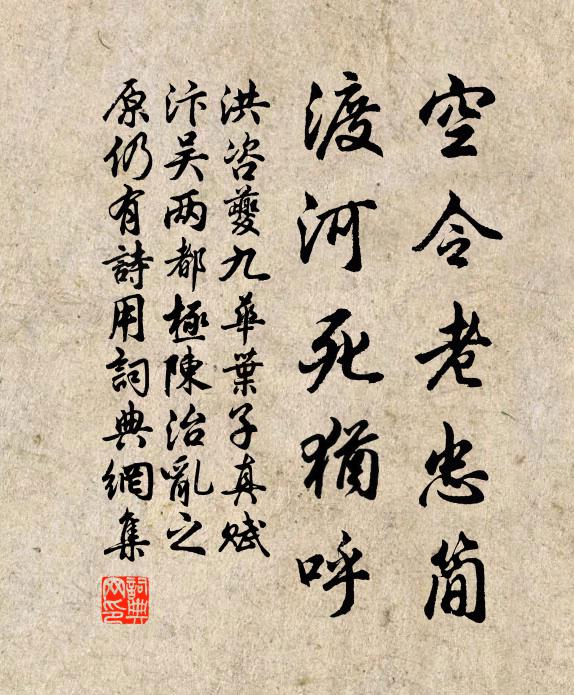 空令老忠簡
渡河死猶呼
洪咨夔九華葉子真賦
汴吴两都極陳治亂之
原仍有詩用詞典網集
詞典
网印